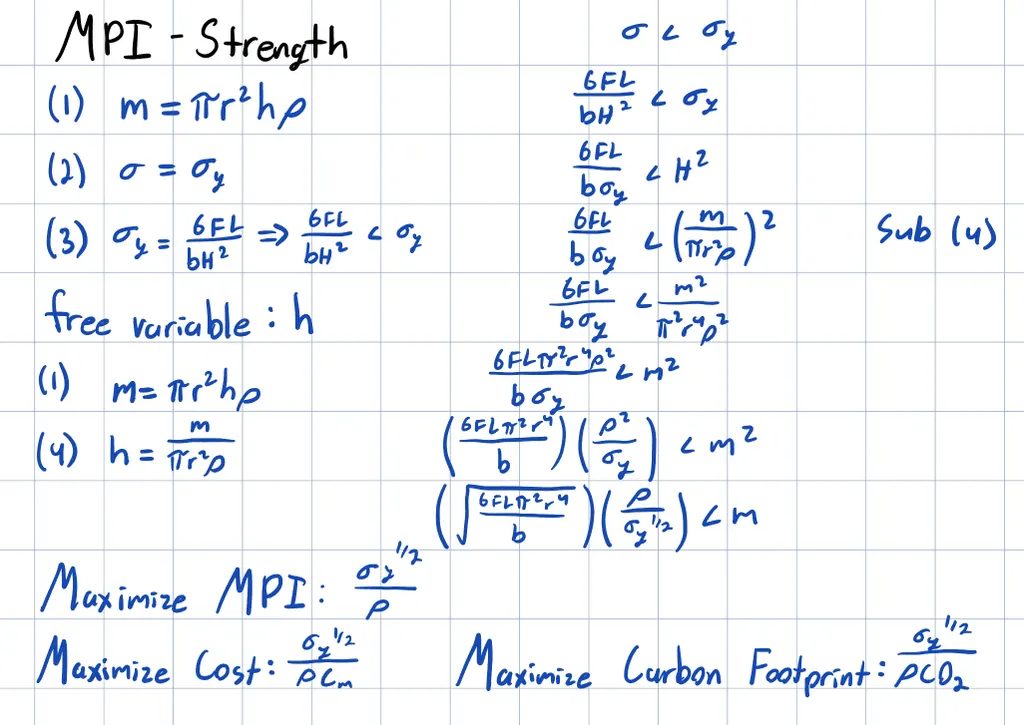 MPI - Strength
(1) m = πr²hρ
(2) σ = σ_y
(3) σ_y = 6FL/bH² => 6FL/bH² < σ_y
free variable: h
(1) m = πr²hρ
(4) h = m/πr²ρ
σ < σ_y
6FL/bH² < σ_y
6FL/bσ_y < H²
6FL/bσ_y < (m/πr²ρ)² Sub (4)
6FL/bσ_y < m²/π²r⁴ρ²
6FLπ²r⁴ρ²/bσ_y < m²
(6FLπ²r⁴/b)(ρ²/σ_y) < m²
(√(6FLπ²r⁴/b))(ρ/σ_y^1/2) < m
Maximize MPI: σ_y^1/2/ρ
Maximize Cost: σ_y^1/2/ρC_m
Maximize Carbon Footprint: σ_y^1/2/ρCO₂